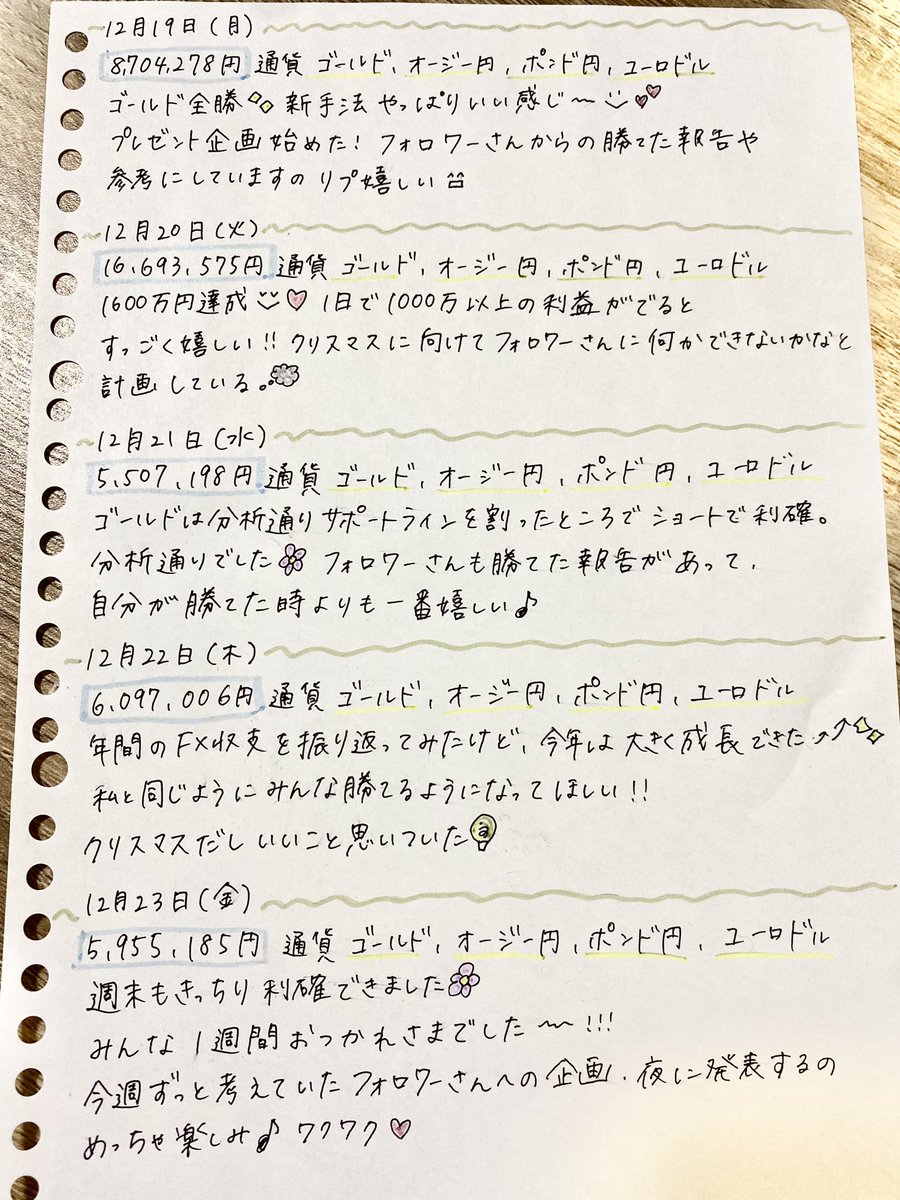 12月19日(月)
8,704,278円 通貨 ゴールド、オージー円、ポンド円、ユーロドル
ゴールド全勝 新手法 やっぱりいい感じ〜
プレゼント企画始めた! フォロワーさんからの勝てた報告や
参考にしていますの リプ嬉しい
12月20日(火)
16,693,575円 通貨 ゴールド、オージー円、ポンド円、ユーロドル
1600万円達成 1日で1000万以上の利益がでると
すっごく嬉しい!! クリスマスに向けてフォロワーさんに何かできないかなと
計画している。
12月21日(水)
5,507,198円 通貨 ゴールド、オージー円、ポンド円、ユーロドル
ゴールドは分析通りサポートラインを割ったところでショートで利確。
分析通りでした フォロワーさんも勝てた報告があって、
自分が勝てた時よりも一番嬉しい♪
12月22日(木)
6,097,006円 通貨 ゴールド、オージー円、ポンド円、ユーロドル
年間のFX収支を振り返ってみたけど、今年は大きく成長できた
私と同じようにみんな勝てるようになってほしい!!
クリスマスだしいいこと思いついた
12月23日(金)
5,955,185円 通貨 ゴールド、オージー円、ポンド円、ユーロドル
週末もきっちり利確できました
みんな1週間おつかれさまでした〜!!!
今週ずっと考えていたフォロワーさんへの企画、夜に発表するの
めっちゃ楽しみ♪ ワクワク♡